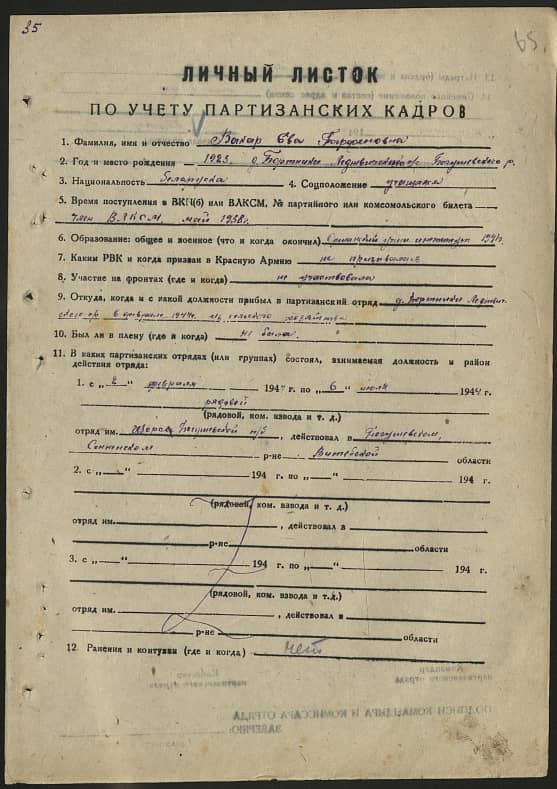 35
65.
ЛИЧНЫЙ ЛИСТОК
ПО УЧЕТУ ПАРТИЗАНСКИХ КАДРОВ
1. Фамилия, имя и отчество Вакар Ева
2. Год и место рождения 1923. д. Бортники Богушевского р.
3. Национальность белоруска 4. Соцположение учащаяся
5. Время поступления в ВКП(б) или ВЛКСМ, № партийного или комсомольского билета
член ВЛКСМ, май 1938 г.
6. Образование: общее и военное (что и когда окончил)
7. Каким РВК и когда призван в Красную Армию не призывалась
8. Участие на фронтах (где и когда) не участвовала
9. Откуда, когда и с какой должности прибыл в партизанский отряд д. Бортники
в феврале из сельского хозяйства
10. Был ли в плену (где и когда) не была
11. В каких партизанских отрядах (или группах) состоял, занимаемая должность и район
действия отряда:
1. с „2“ февраля 194 г. по „6“ июля 1944 г.
рядовой
(рядовой, ком. взвода и т. д.)
отряд им. Богушевской п/б, действовал в Богушевском,
Сенненском р-не Витебской области
2. с „ “ 194 г. по „ “ 194 г.
(рядовой, ком. взвода и т. д.)
отряд им. , действовал в
р-не области
3. с „ “ 194 г. по „ “ 194 г.
(рядовой, ком. взвода и т. д.)
отряд им. , действовал в
р-не области
12. Ранения и контузии (где и когда) нет